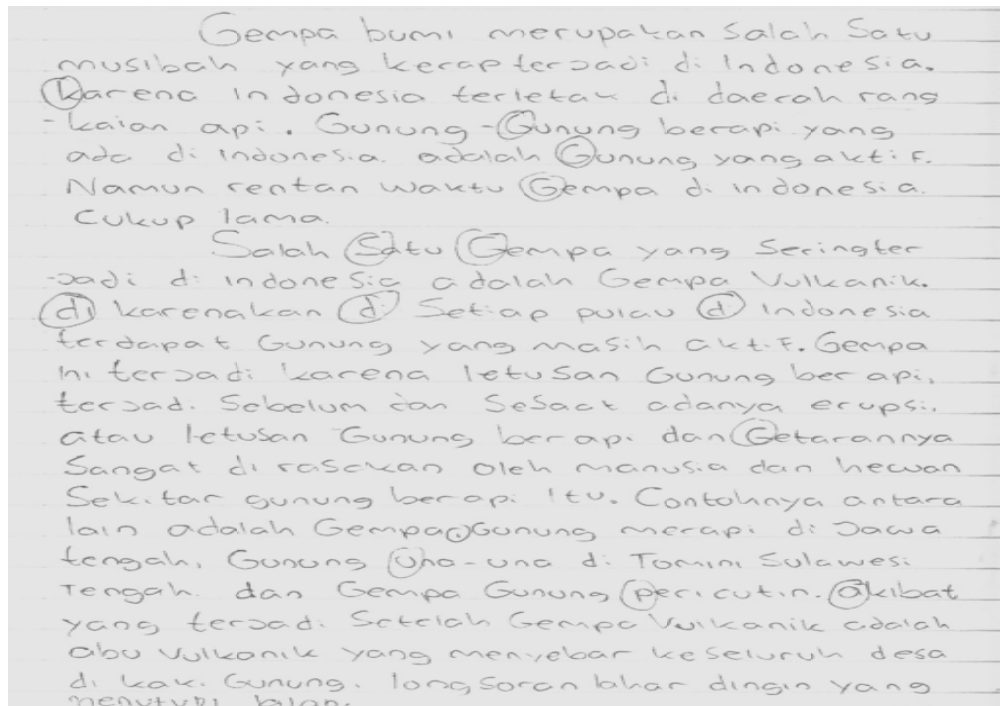 Gempa bumi merupakan Salah Satu
musibah yang kerap terjadi di Indonesia.
Karena indonesia terletak di daerah rang
-kaian api. Gunung-Gunung berapi yang
ada di indonesia. adalah Gunung yang aktif.
Namun rentan waktu Gempa di indonesia.
Cukup lama.
Salah Satu Gempa yang Seringter
-jadi di indonesia adalah Gempa Vulkanik.
di karenakan di Setiap pulau di Indonesia
terdapat Gunung yang masih aktif. Gempa
ini terjadi karena letusan Gunung ber api.
terjadi Sebelum dan Sesaat adanya erupsi.
atau letusan Gunung berapi dan Getarannya
Sangat di rasakan oleh manusia dan hewan
Sekitar gunung berapi Itu. Contohnya antara
lain adalah Gempa Gunung merapi di Jawa
tengah, Gunung Una-una di Tomini Sulawesi
Tengah. dan Gempa Gunung pericutin. akibat
yang terjadi Setelah Gempa Vulkanik adalah
abu Vulkanik yang menyebar keseluruh desa
di kaki Gunung. longsoran lahar dingin yang
menutupi jalan.